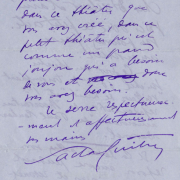 dans ce théâtre que
vous avez créé, dans ce
petit théâtre qui est
comme un grand
joujou qui a besoin
de vous et dont
vous avez besoin.
Je serre respectueuse
-ment et affectueusement
vos mains
Sacha Guitry